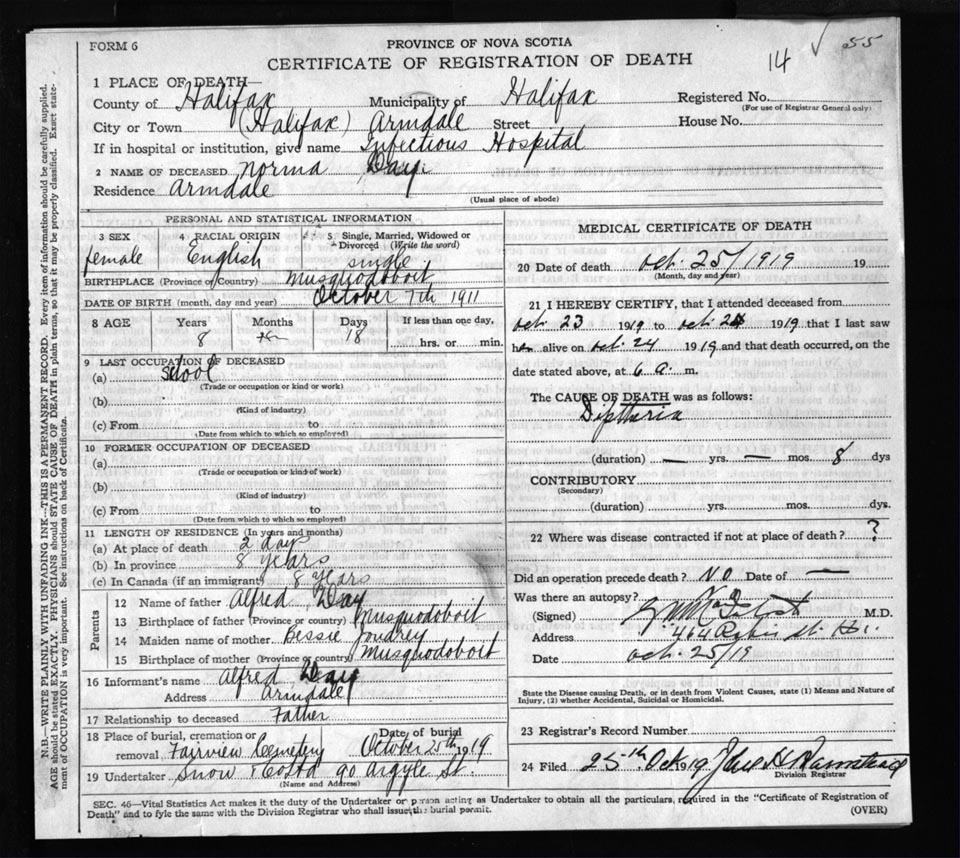 FORM 6
PROVINCE OF NOVA SCOTIA
CERTIFICATE OF REGISTRATION OF DEATH
14 √ 55
1 PLACE OF DEATH—
County of Halifax Municipality of Halifax Registered No.
(For use of Registrar General only)
City or Town (Halifax) Armdale Street House No.
If in hospital or institution, give name Infectious Hospital
2 NAME OF DECEASED Norma Day.
Residence Armdale
(Usual place of abode)
PERSONAL AND STATISTICAL INFORMATION
3 SEX 4 RACIAL ORIGIN 5 Single, Married, Widowed or Divorced (Write the word)
female English single
BIRTHPLACE (Province or Country) Musquodoboit
DATE OF BIRTH (month, day and year) October 7th 1911
8 AGE Years Months Days If less than one day,
8 18 hrs. or min.
9 LAST OCCUPATION OF DECEASED
(a) School
(Trade or occupation or kind or work)
(b)
(Kind of industry)
(c) From to
(Date from which to which so employed)
10 FORMER OCCUPATION OF DECEASED
(a)
(Trade or occupation or kind of work)
(b)
(Kind of industry)
(c) From to
(Date from which to which so employed)
11 LENGTH OF RESIDENCE (In years and months)
(a) At place of death 2 days
(b) In province 8 years
(c) In Canada (if an immigrant) 8 years
Parents
12 Name of father Alfred Day
13 Birthplace of father (Province or country) Musquodoboit
14 Maiden name of mother Bessie
15 Birthplace of mother (Province or country) Musquodoboit
16 Informant's name Alfred Day
Address Armdale
17 Relationship to deceased Father
18 Place of burial, cremation or removal Fairview Cemetery Date of burial October 25th 1919
19 Undertaker Snow & Co Ltd 90 Argyle St.
(Name and Address)
MEDICAL CERTIFICATE OF DEATH
20 Date of death Oct. 25/1919 19
(Month, day and year)
21 I HEREBY CERTIFY, that I attended deceased from
Oct. 23 1919 to Oct. 24 1919 that I last saw
her alive on Oct. 24 1919 and that death occurred, on the
date stated above, at 6 a. m.
The CAUSE OF DEATH was as follows:
Diptheria
(duration) — yrs. — mos. 8 dys
CONTRIBUTORY
(Secondary)
(duration) yrs. mos. dys.
22 Where was disease contracted if not at place of death? ?
Did an operation precede death? No Date of —
Was there an autopsy?
(Signed) M.D.
Address 464
Date Oct. 25/19
State the Disease causing Death, or in death from Violent Causes, state (1) Means and Nature of
Injury, (2) whether Accidental, Suicidal or Homicidal.
23 Registrar's Record Number
24 Filed 25th Oct 1919
Division Registrar
SEC. 46—Vital Statistics Act makes it the duty of the Undertaker or person acting as Undertaker to obtain all the particulars, required in the "Certificate of Registration of
Death" and to fyle the same with the Division Registrar who shall issue the burial permit. (OVER)
N.B.—WRITE PLAINLY WITH UNFADING INK—THIS IS A PERMANENT RECORD. Every item of information should be carefully supplied.
AGE should be stated EXACTLY. PHYSICIANS should STATE CAUSE OF DEATH in plain terms, so that it may be properly classified. Exact state-
ment of OCCUPATION is very important. See instructions on back of Certificate.